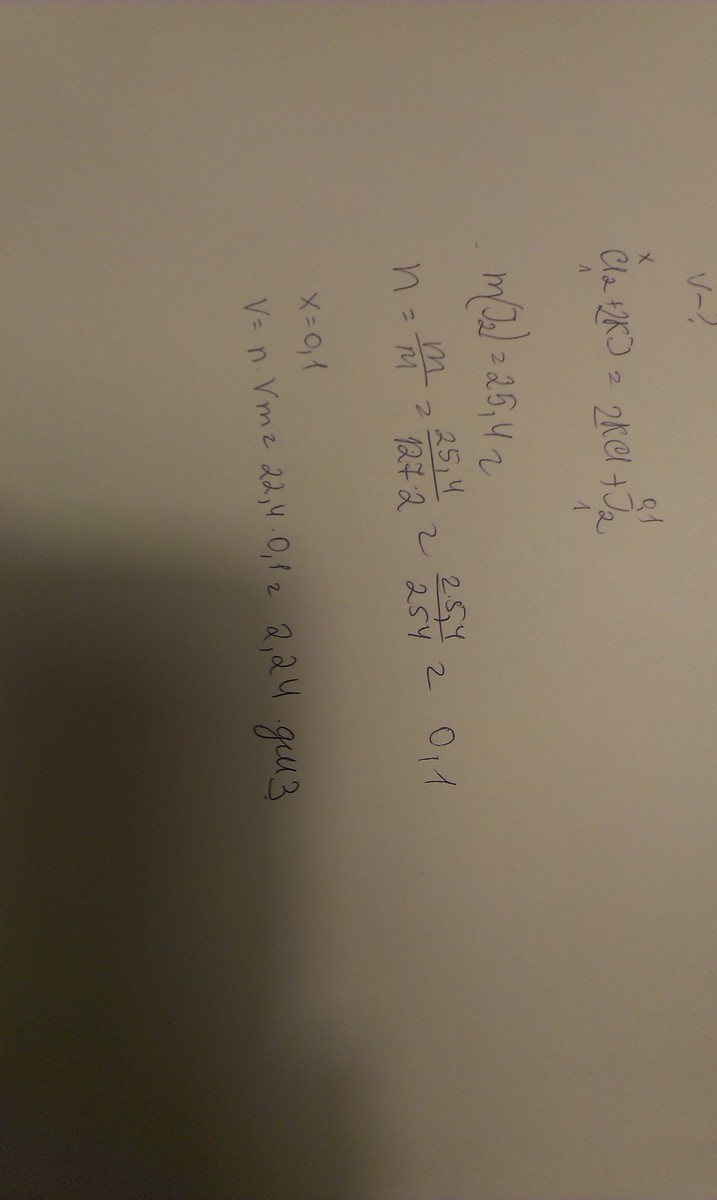 V-?
x 0,1
Cl₂ + 2KJ = 2KCl + J₂
1 1
m(J₂) = 25,4 г
n = m/M = 25,4/127·2 = 25,4/254 = 0,1
x = 0,1
V = n · Vm = 22,4 · 0,1 = 2,24 дм3